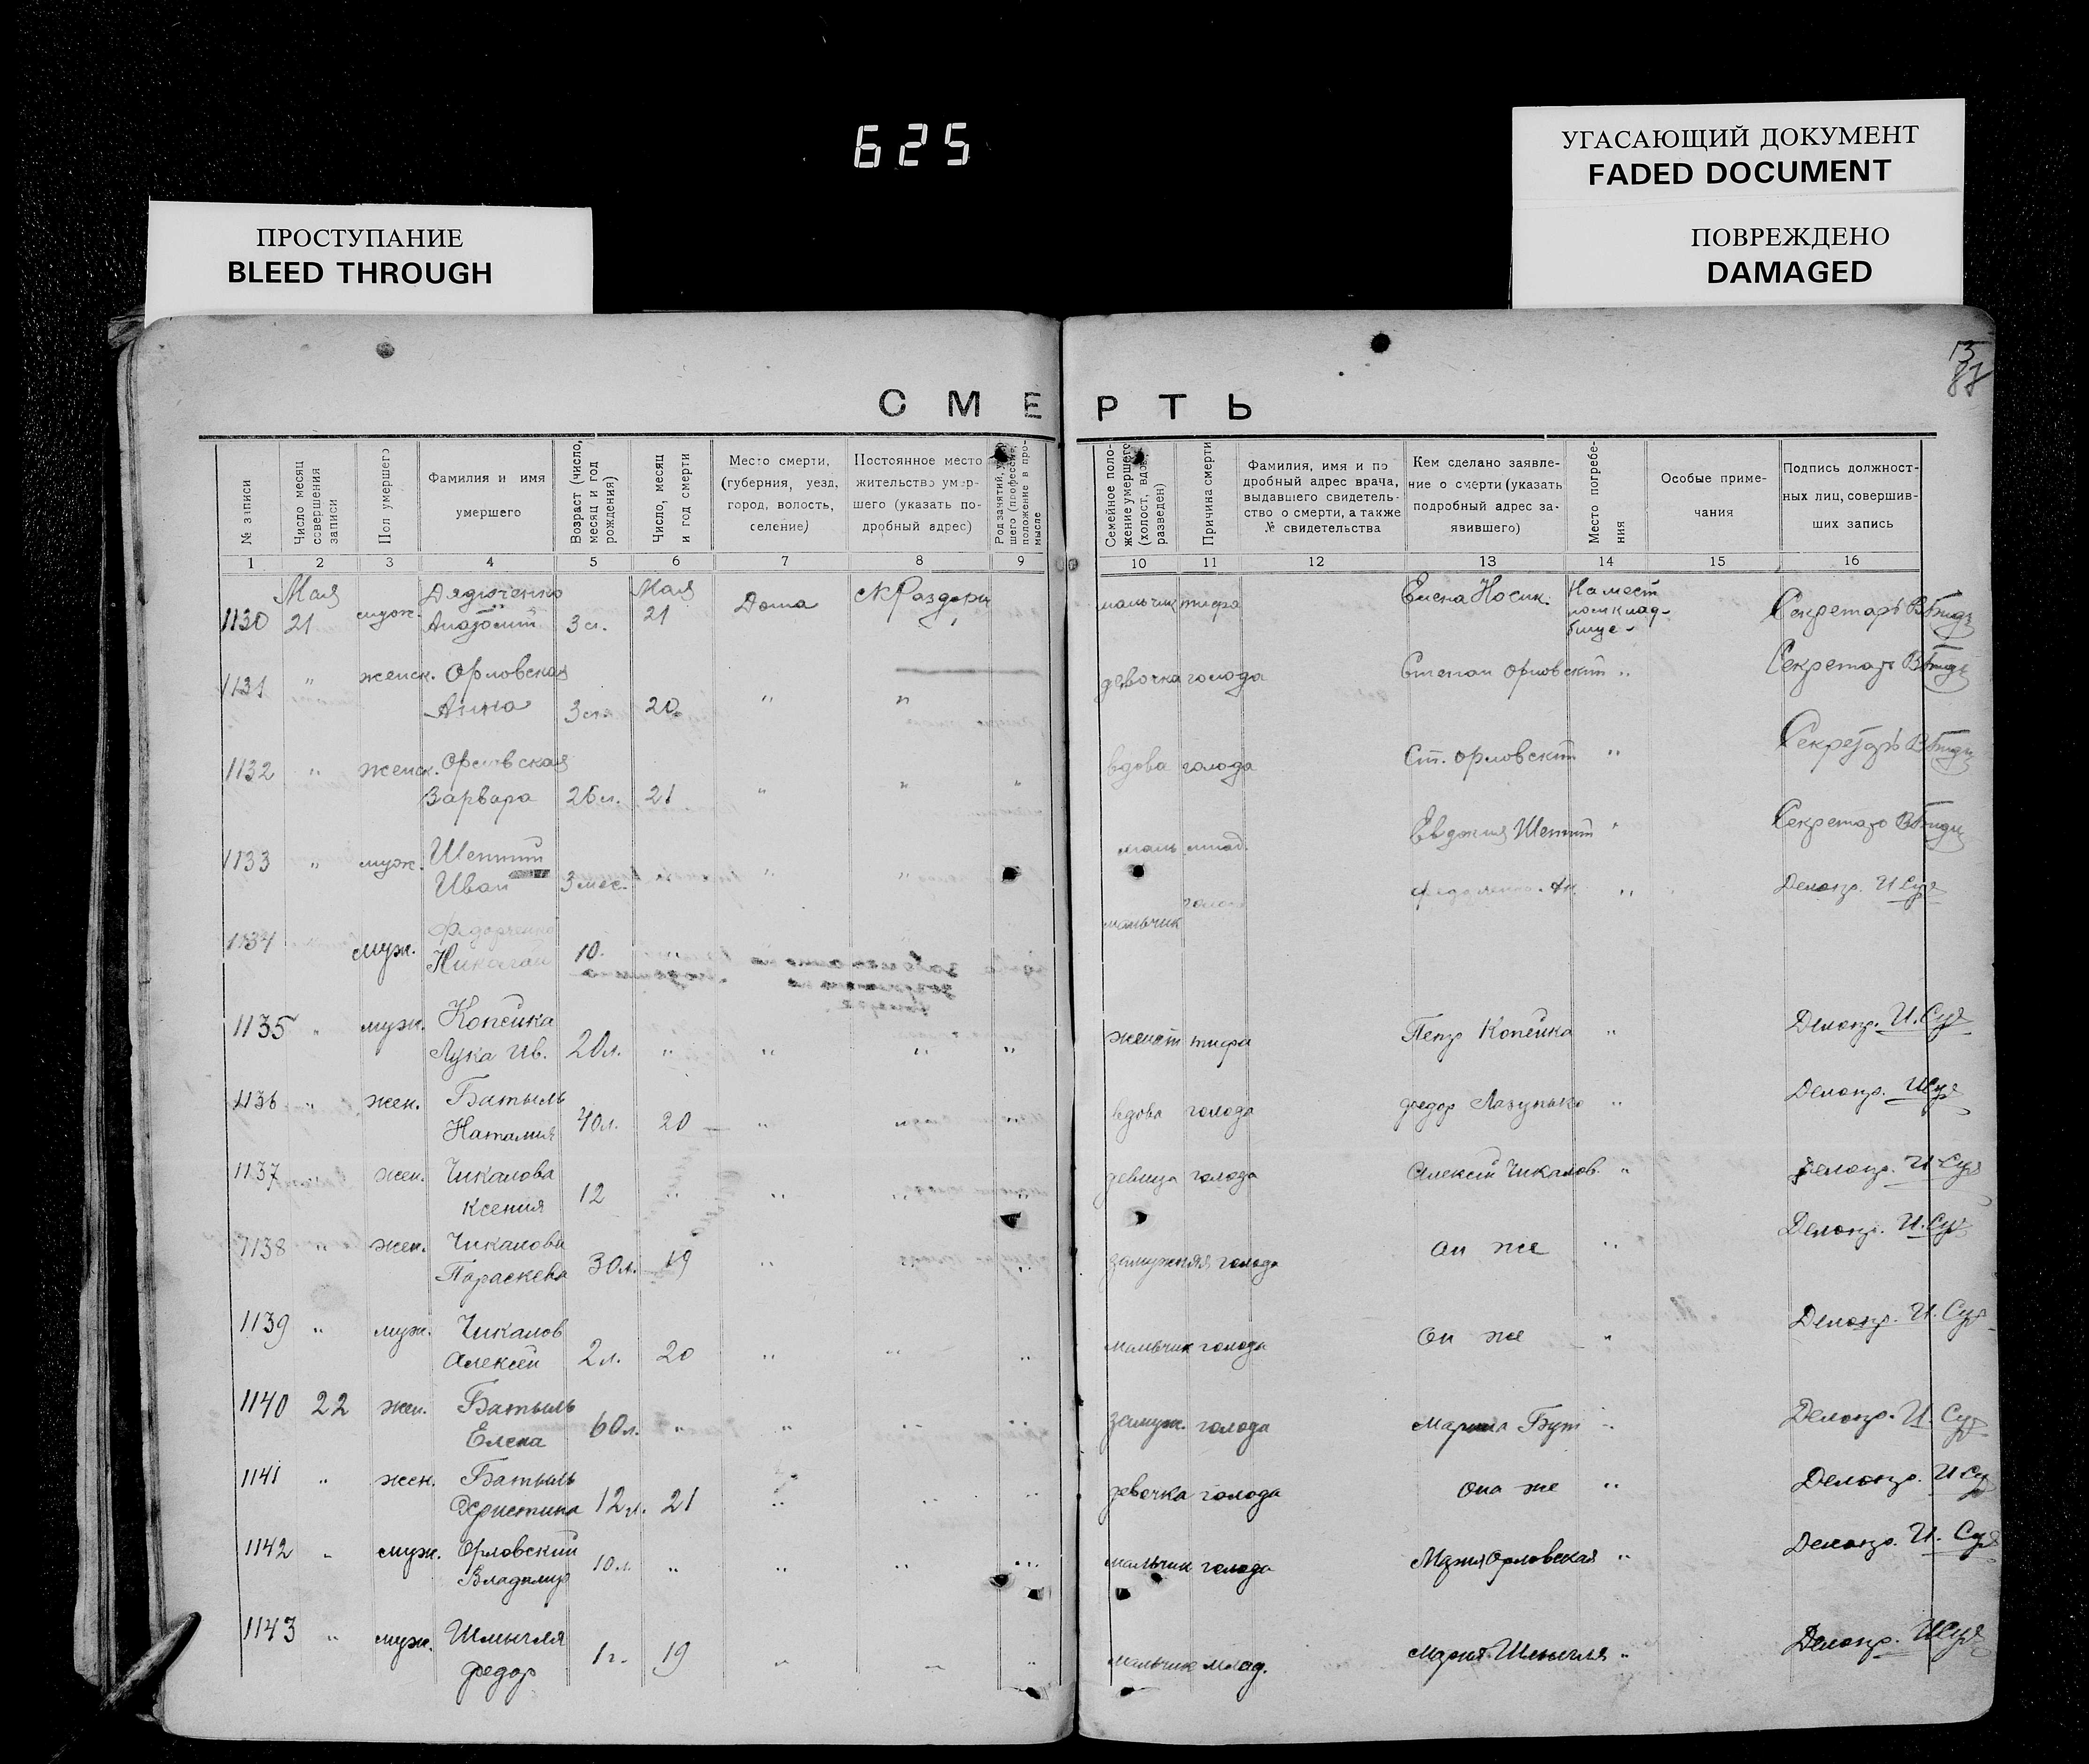 625
УГАСАЮЩИЙ ДОКУМЕНТ
FADED DOCUMENT
ПРОСТУПАНИЕ
BLEED THROUGH
ПОВРЕЖДЕНО
DAMAGED
СМЕРТЬ
№ записи
Число месяц совершения записи
Пол умершего
Фамилия и имя умершего
Возраст (число, месяц и год рождения)
Число, месяц и год смерти
Место смерти, (губерния, уезд, город, волость, селение)
Постоянное место жительство умершего (указать подробный адрес)
Род занятий, умершего (профессия, положение в промысле
Семейное положение умершего (холост, вдов, разведен)
Причина смерти
Фамилия, имя и подробный адрес врача, выдавшего свидетельство о смерти, а также № свидетельства
Кем сделано заявление о смерти (указать подробный адрес заявившего)
Место погребения
Особые примечания
Подпись должностных лиц, совершивших запись
1 2 3 4 5 6 7 8 9 10 11 12 13 14 15 16
Мая Мая
1130 21 муж. Анатолий 3 л. 21 Дома мальчик тифа Елена Носик. На мест Секретарь
1131 " женск. Орловская Анна 3 л. 20 " " девочка голода Степан Орловский " Секретарь
1132 " женск. Орловская Варвара 26 л. 21 " " " вдова голода Ст. Орловский " Секретарь
1133 " муж. Иван 3 мес. " " маль млад. " Секретарь
1134 муж. Федорченко Николай 10. мальчик голод " Делопр. И Суд
1135 " муж. Копейка Лука Ив. 20 л. " " " " женат тифа Петр Копейка " Делопр. И. Суд
1136 " жен. Батыль Наталия 40 л. 20 " вдова голода Федор " Делопр.
1137 " жен. Чикалова Ксения 12 " " " " девица голода Алексей Чикалов. " Делопр.
1138 " жен. Чикалова Параскева 30 л. 19 " " замужняя голода Он же " Делопр.
1139 " муж. Чикалов Алексей 2 л. 20 " " " мальчик голода Он же " Делопр.
1140 22 жен. Батыль Елена 60 л. " " " " замуж. голода Мария Бут " Делопр.
1141 " жен. Батыль Христина 12 л. 21 " " " девочка голода Она же " Делопр.
1142 " муж. Орловский Владимир 10 л. " " " " мальчик голода Мария Орловская " Делопр.
1143 " муж. Шмыгля Федор 1 г. 19 " " " мальчик млад. Мария Шмыгля " Делопр.